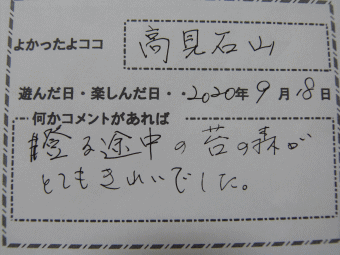 よかったよココ 高見石山
遊んだ日・楽しんだ日・・2020年9月18日
何かコメントがあれば
登る途中の苔の森が
とてもきれいでした。